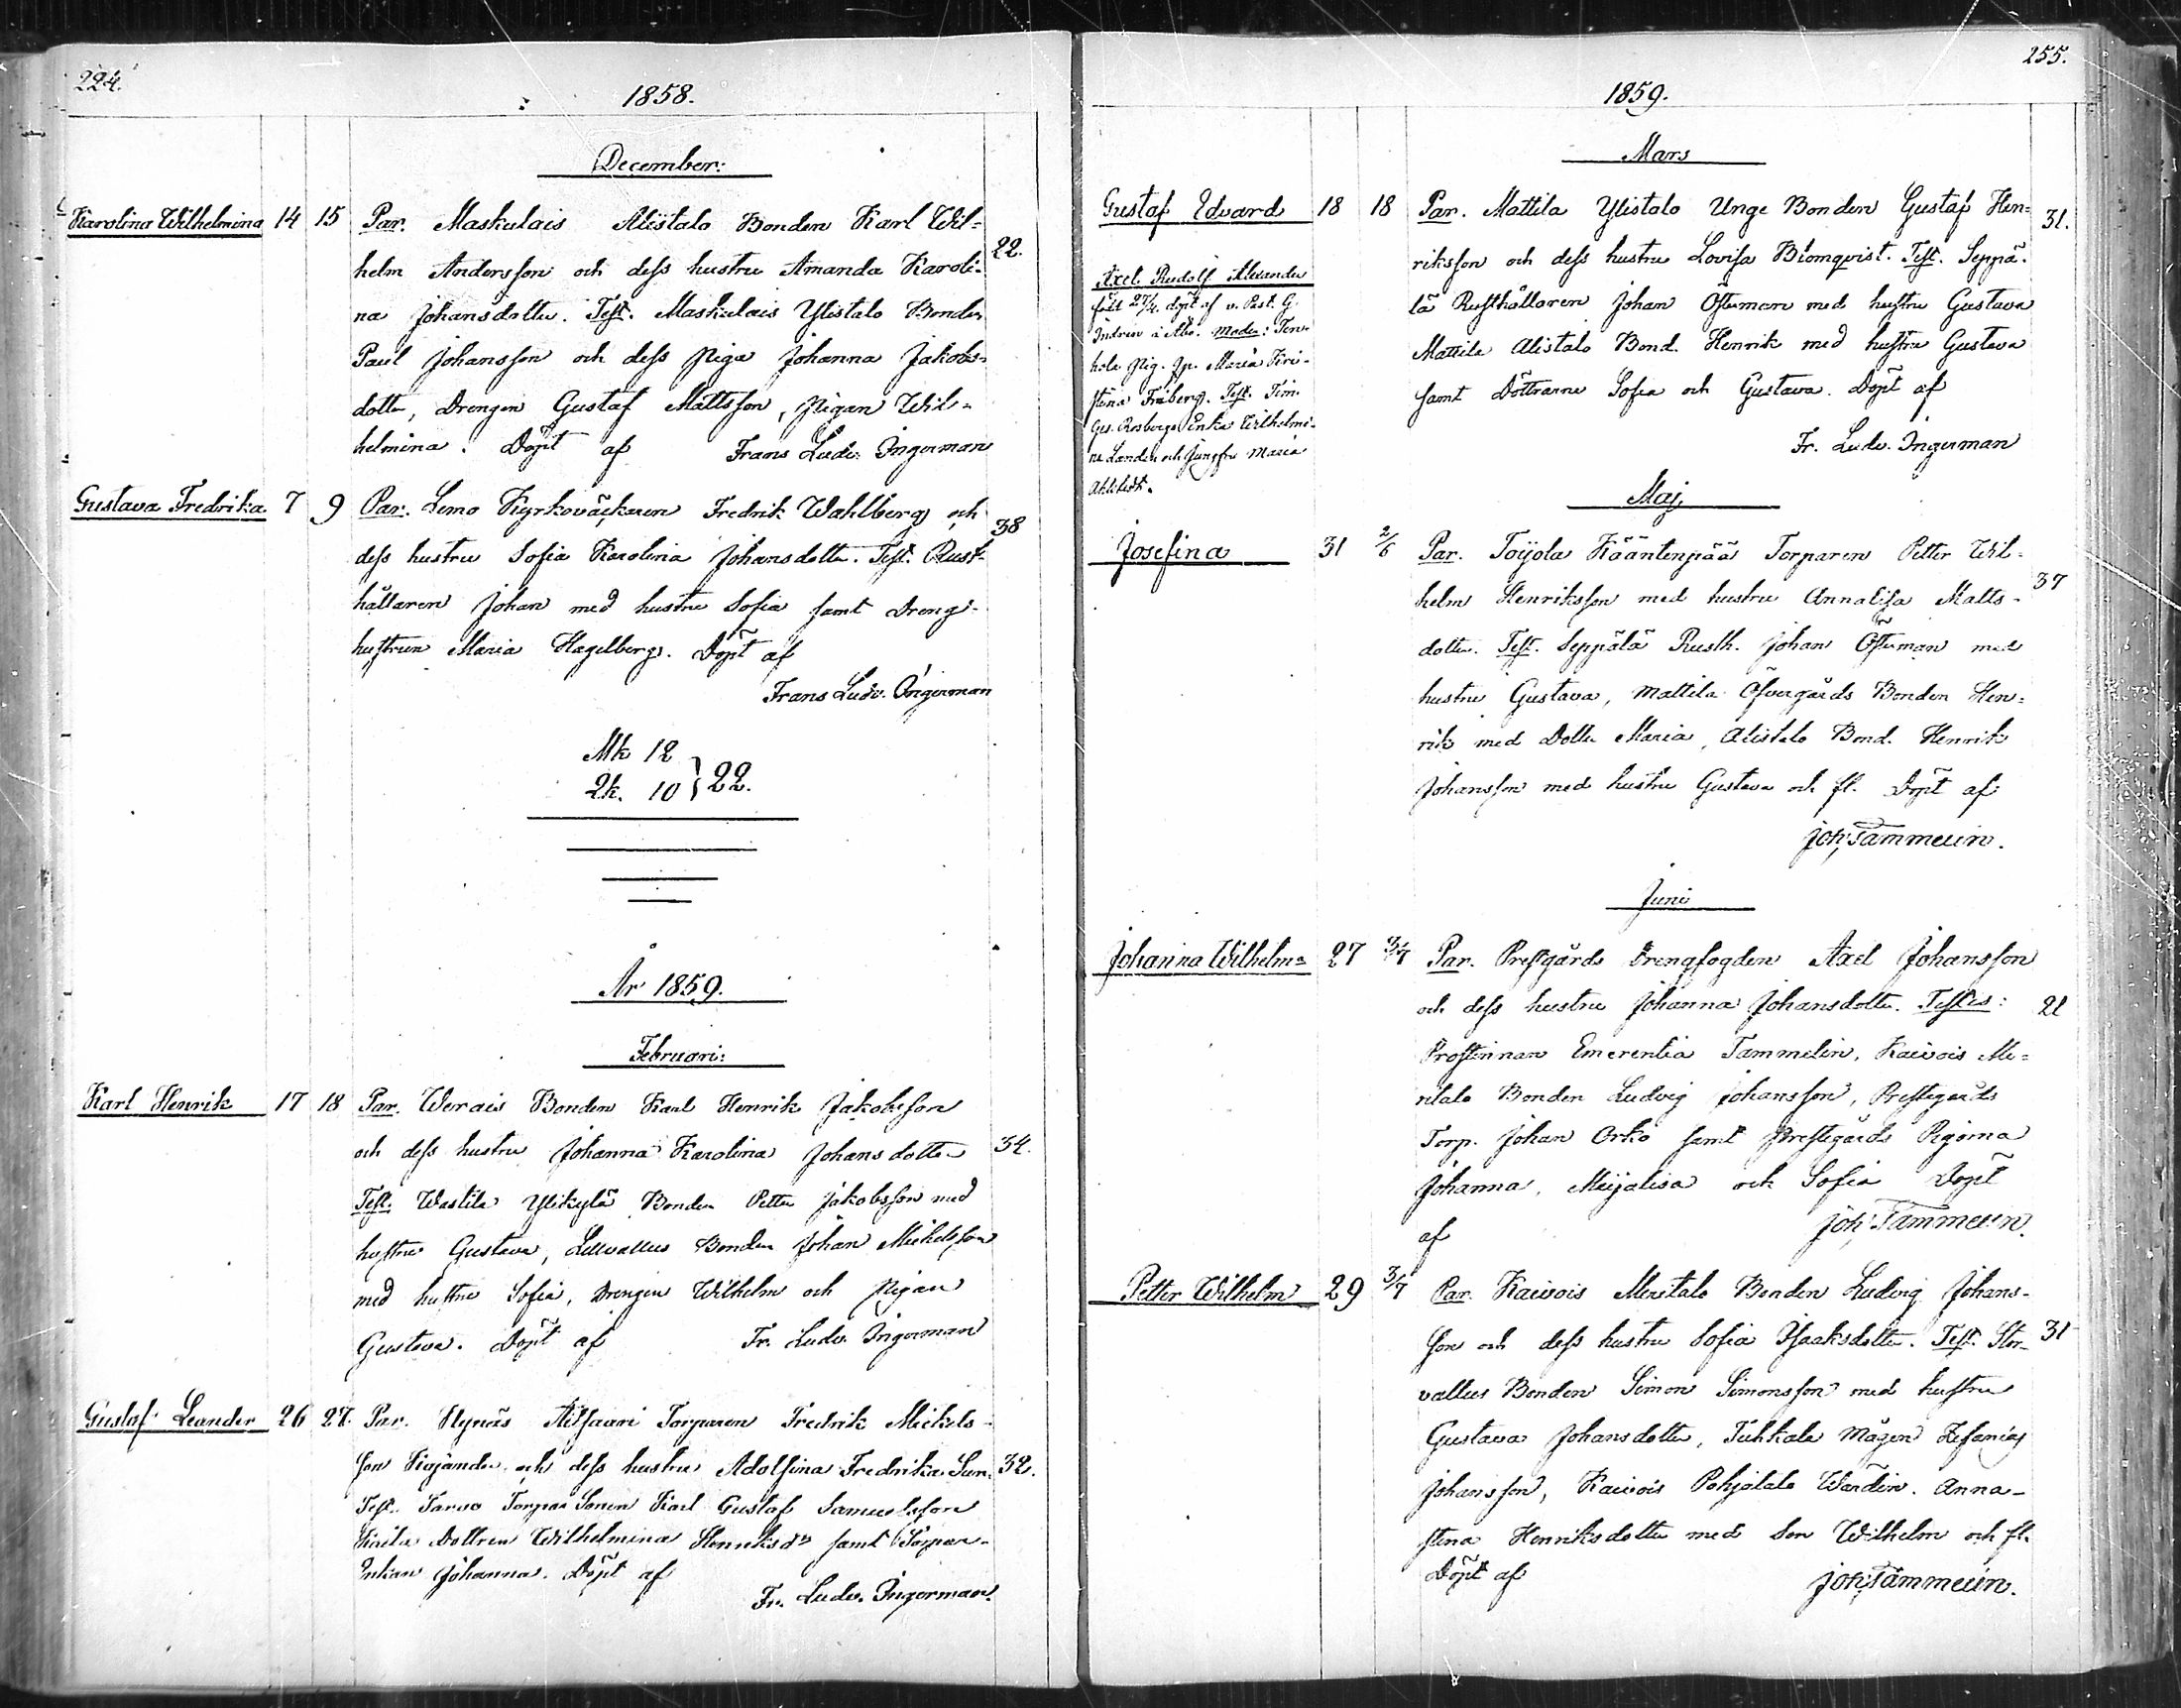 224.
1858.
December:
Karolina Wilhelmina 14 15 Par. Maskulais Alistalo Bonden Karl Wil=
helm Andersson och dess hustru Amanda Karoli= 22.
na Johansdotter. Test. Maskulais Ylistalo Bonden
Paul Johansson och dess Piga Johanna Jakobs=
dotter, Drengen Gustaf Mattsson, Pigan Wil=
helmina. Döpt af Frans Ludv. Ingerman
Gustava Fredrika 7 9 Par. Lemo Kyrkoväcktaren Fredrik Wahlberg och
dess hustru Sofia Karolina Johansdotter. Test. Rust- 38
hållaren Johan med hustru Sofia samt Dreng-
hustrun Maria Hagelberg. Döpt af
Frans Ludv. Ingerman
Mk 12
Qk. 10 } 22.
År 1859.
Februari:
Karl Henrik 17 18 Par. Werais Bonden Karl Henrik Jakobsson
och dess hustru Johanna Karolina Johansdotter 34.
Test. Wastila Ylikylä Bonden Petter Jakobsson med
hustru Gustava, Lillvallus Bonden Johan Michelsson
med hustru Sofia, Drengen Wilhelm och Pigan
Gustava. Döpt af Fr. Ludv. Ingerman
Gustaf Leander 26 27. Par. Hynäs Torparen Fredrik Mickels-
son och dess hustru Adolfina Fredrika 32.
Test. Tarvo Torpare Sonen Karl Gustaf Samuelsson
Dottren Wilhelmina Henriksdr samt Torpar-
Enkan Johanna. Döpt af
Fr. Ludv. Ingerman.
255.
1859.
Mars
Gustaf Edvard 18 18 Par. Mattila Ylistalo Unge Bonden Gustaf Hen= 31.
riksson och dess hustru Lovisa Blomqvist. Test. Seppä=
lä Rusthållaren Johan Österman med hustru Gustava
Mattila Alistalo Bond. Henrik med hustru Gustava
samt Döttrarne Sofia och Gustava. Döpt af
Fr. Ludv. Ingerman
Axel Rudolf Alexander
född 27/4. döpt af v. Past. G.
Indren i Åbo. Mader: Ten-
hola Pig. Maria Kri-
stina Fräberg. Test. Tim.
Ges. Rosbergs Enka Wilhelmi-
na Landen och Jungfru Maria
Maj
Josefina 31 2/6 Par. Toijola Kääntenpää Torparen Petter Wil-
helm Henriksson med hustru Annalisa Matts- 37
dotter. Test. Seppälä Rusth. Johan Österman med
hustru Gustava, Mattila Öfvergårds Bonden Hen=
rik med Dotter Maria, Alistalo Bond. Henrik
Johansson med hustru Gustava och fl. Döpt af
Joh. Tammelin.
Juni
Johanna Wilhelm= 27 3/7 Par. Prestgårds Drengfogden Axel Johansson
och dess hustru Johanna Johansdotter. Testes: 21
Prostinnan Emerentia Tammelin, Kaivois Me=
ritalo Bonden Ludvig Johansson, Prestegårds
Torp. Johan Orko samt Prestegårds Pigorna
Johanna, Maijalisa och Sofia Döpt
af Joh. Tammelin.
Petter Wilhelm 29 3/7 Par. Kaivois Meritalo Bonden Ludvig Johans-
son och dess hustru Sofia Isaksdotter. Test. Stor- 31
vallus Bonden Simon Simonsson med hustru
Gustava Johansdotter, Tuhkala Mågen Zefanias
Johansson, Kaivois Pohjotalo Wärdin. Anna-
stina Henriksdotter med Son Wilhelm och fl.
Döpt af Joh. Tammelin.